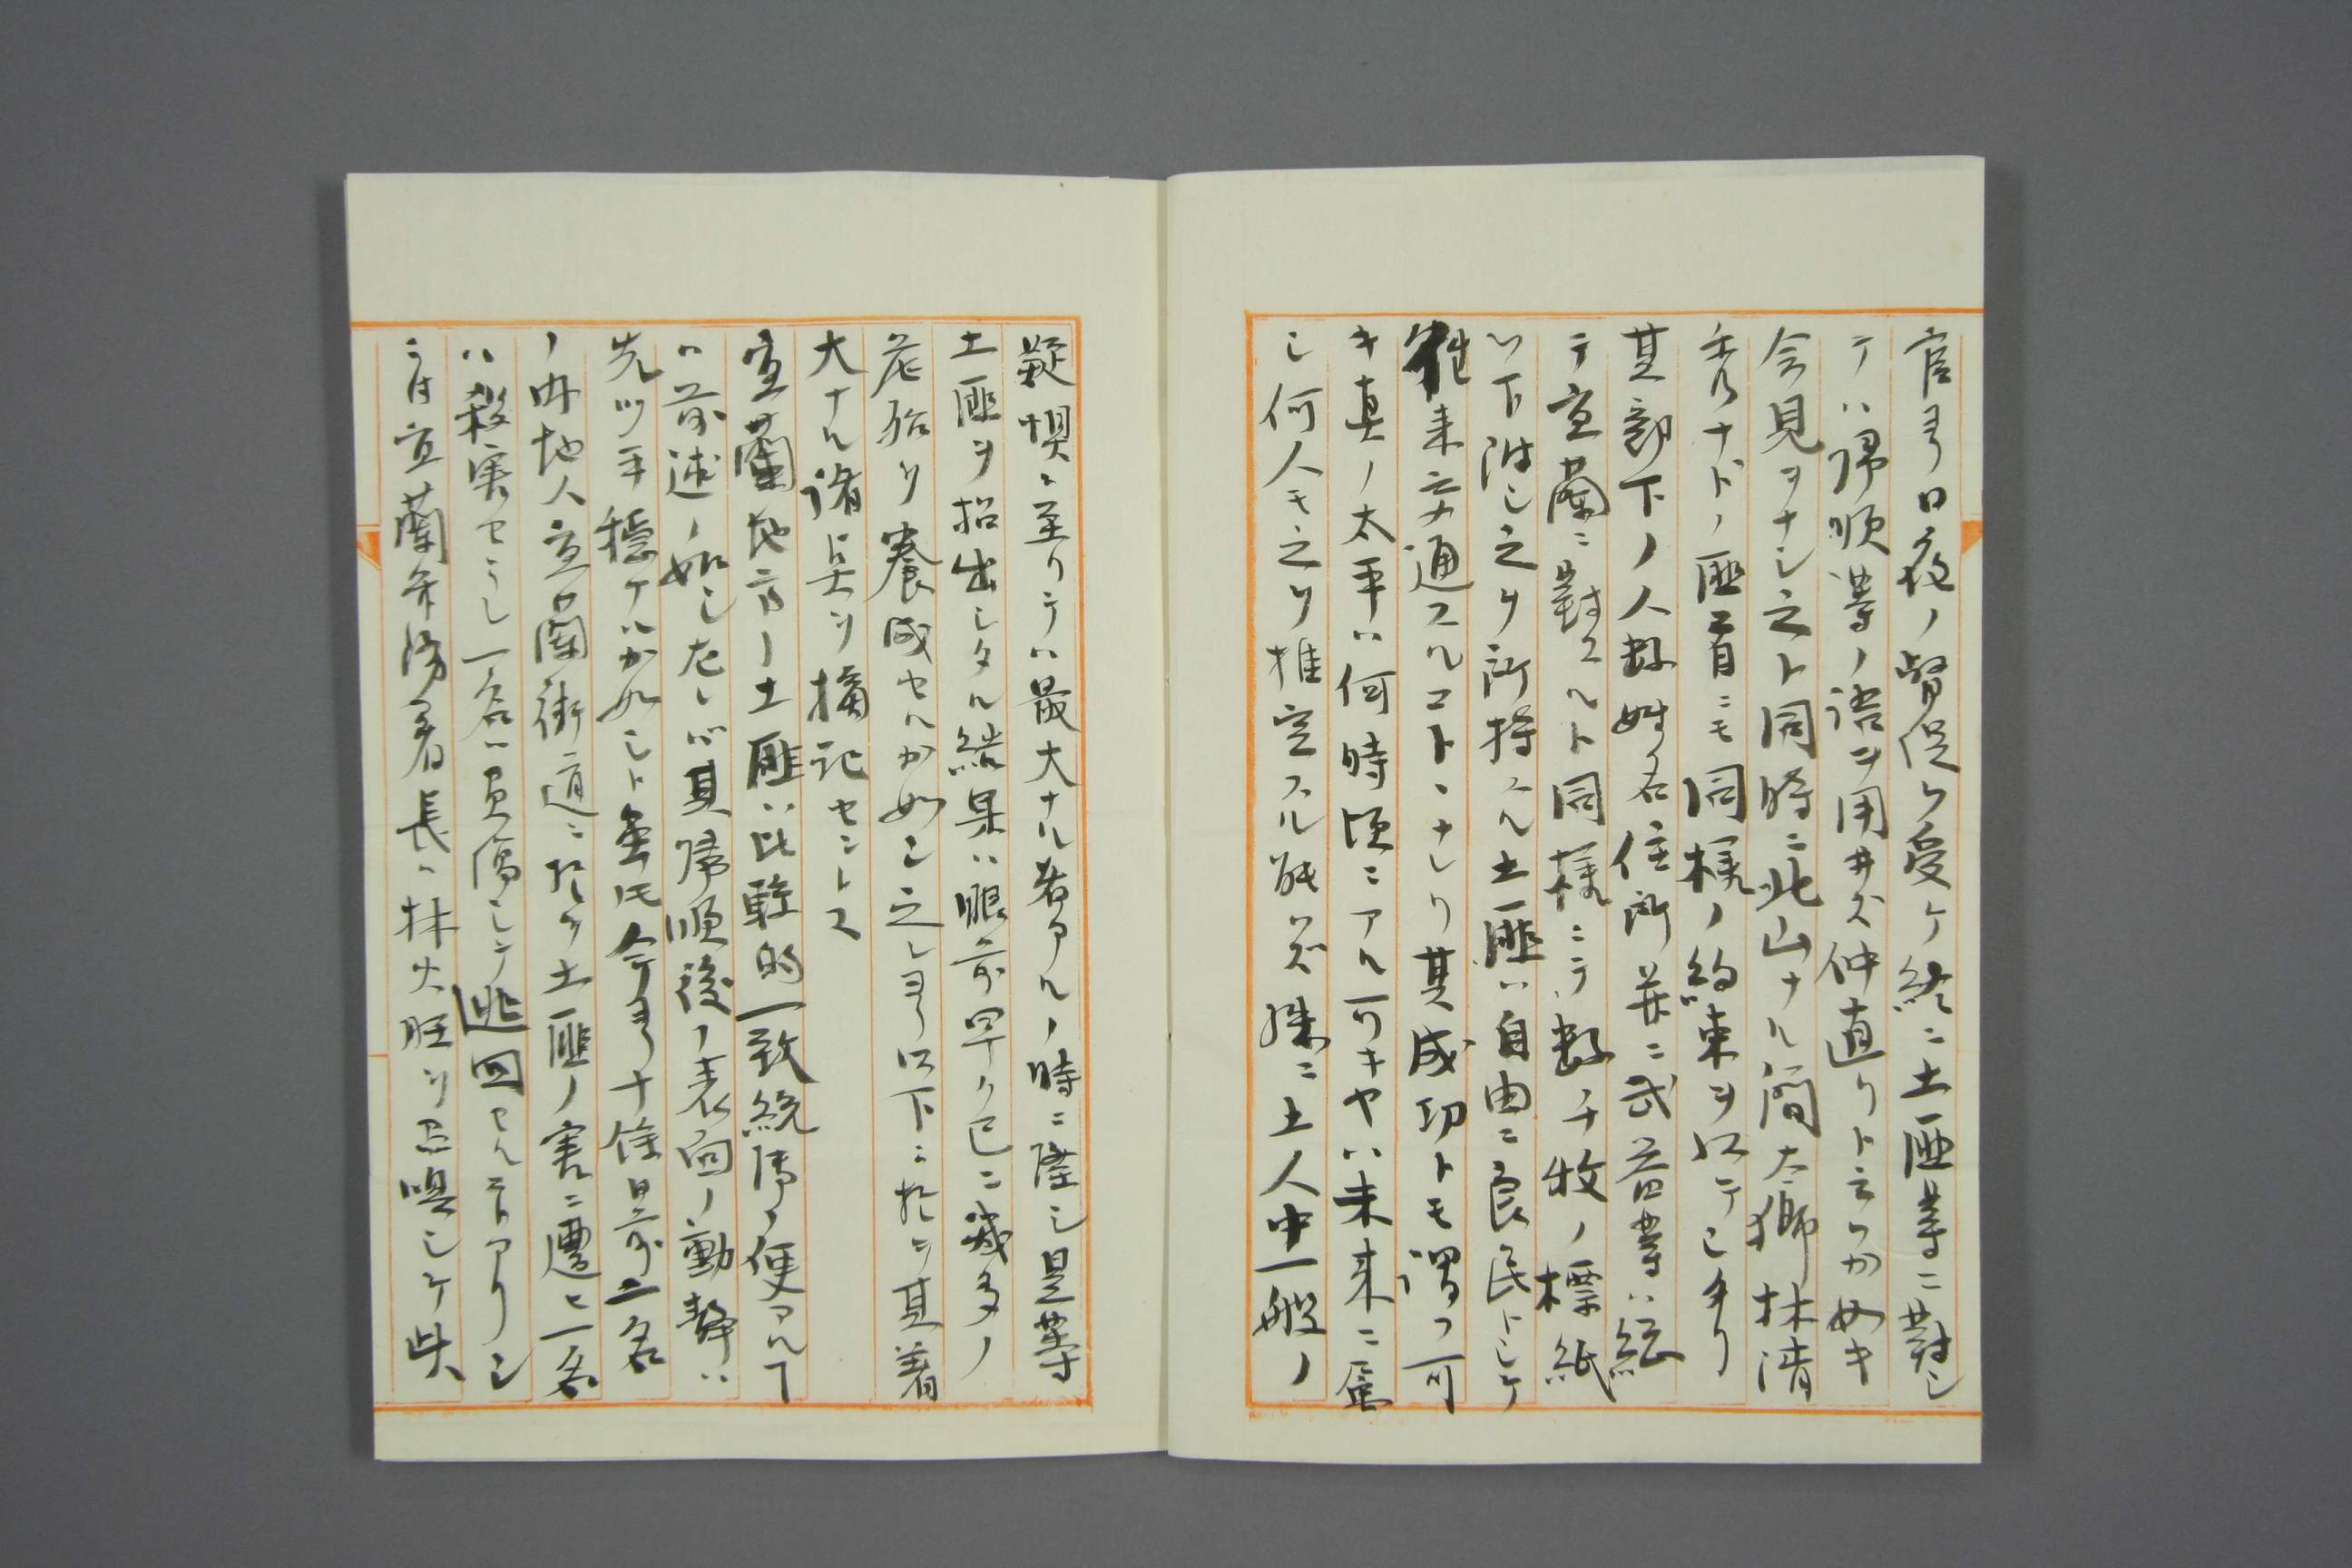 官ヨリ日夜ノ督促ヲ受ケ終ニ土匪等ニ對シ
テハ帰順等ノ語ヲ用井ズ仲直リト云フカ如キ
会見ヲナシ之ト同時ニ北山ナル簡大獅林清
秀ナドノ匪首ニモ同様ノ約束ヲ以テシタリ
其部下ノ人数姓名住所并ニ武器等ハ総
テ宜蘭ニ對スルト同様ニテ数千枚ノ標紙
ヲ下附シ之ヲ所持スル土匪ハ自由ニ良民トシテ
往来交通スルコトヽナレリ其成功トモ謂フ可
キ真ノ太平ハ何時頃ニアル可キヤハ未来ニ属
シ何人モ之ヲ推定スル能ハズ殊ニ土人中一般ノ
疑惧ニ至リテハ最大ナル者アルノ時ニ際シ是等
土匪ヲ招出シタル結果ハ眼前早ク已ニ幾多ノ
危殆ヲ養成セルカ如シ之レヨリ以下ニ於テ其著
大ナル諸点ヲ摘記セントス
宜蘭地方ノ土匪ハ比較的一致統御ノ便アルヿ
ハ前述ノ如シ左レバ其帰順後ノ表面ノ動静ハ
先ツ平穏ナルカ如シト虽𪜈今ヨリ十余日前二名
ノ内地人宜蘭街道ニ於テ土匪ノ害ニ遭ヒ一名
ハ殺害セラレ一名ハ負傷シテ逃回セル等アリシ
ラ付宜蘭弁務署長ハ林火旺ヲ召喚シテ此